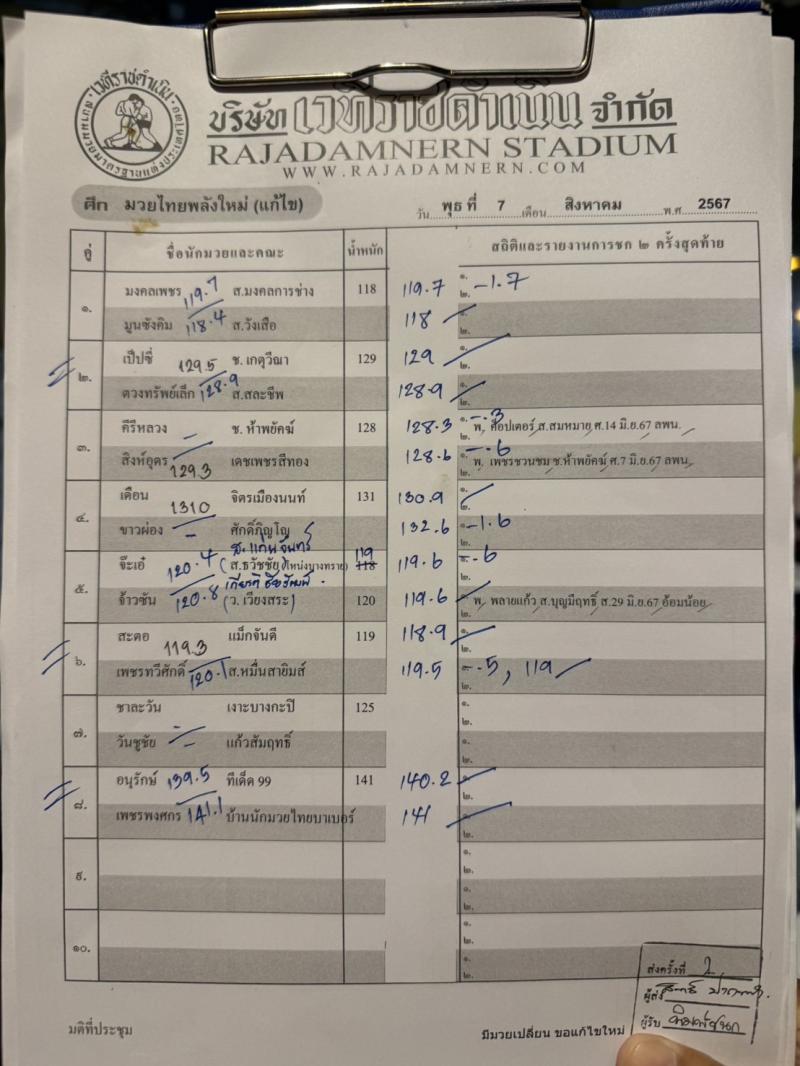 เวทีราชดำเนิน
สนามมวยมาตรฐานแห่งประเทศไทย
บริษัท เวทีราชดำเนิน จำกัด
RAJADAMNERN STADIUM
WWW.RAJADAMNERN.COM
ศึก มวยไทยพลังใหม่ (แก้ไข)
วัน พุธ ที่ 7 เดือน สิงหาคม พ.ศ 2567
คู่ ชื่อนักมวยและคณะ น้ำหนัก สถิติและรายงานการชก ๒ ครั้งสุดท้าย
๑. มงคลเพชร 119.7 ส.มงคลการช่าง 118 119.7 ๑. ๒. -1.7
มูนซังคิม 118.4 ส.วังเสือ 118 ๑. ๒.
๒. เป๊ปซี่ 129.5 ช. เกตุวีณา 129 129 ๑. ๒.
ดวงทรัพย์เล็ก 128.9 ส.สละชีพ 128.9 ๑. ๒.
๓. คีรีหลวง - ช. ห้าพยัคฆ์ 128 128.3 -.3 ๑. พ. ค็อปเตอร์ ส.สมหมาย ศ.14 มิ.ย.67 ลพน. ๒.
สิงห์อุดร 129.3 เดชเพชรสีทอง 128.6 -.6 ๑. พ. เพชรชวนชม ช.ห้าพยัคฆ์ ศ.7 มิ.ย.67 ลพน. ๒.
๔. เดือน 131.0 จิตรเมืองนนท์ 131 130.9 ๑. ๒.
ขาวผ่อง - ศักดิ์ภิญโญ 132.6 ๑. -1.6 ๒.
๕. จ๊ะเอ๋ 120.4 ส.แก่นจันทร์ (ส.ธวัชชัย)โหน่งบางทราย) 119 118 119.6 ๑. -.6 ๒.
จ้าวซัน 120.8 (ว. เวียงสระ) 120 119.6 ๑. พ. พลายแก้ว ส.บุญมีฤทธิ์ ส.29 มิ.ย.67 อ้อมน้อย ๒.
๖. สะตอ 119.3 แม็กจันดี 119 118.9 ๑. ๒.
เพชรทวีศักดิ์ 120.1 ส.หมื่นสายิมส์ 119.5 ๑. -.5, 119 ๒.
๗. ชาละวัน - เงาะบางกะปิ 125 ๑. ๒.
วันชูชัย - แก้วสัมฤทธิ์ ๑. ๒.
๘. อนุรักษ์ 139.5 ทีเด็ด 99 141 140.2 ๑. ๒.
เพชรพงศกร 141.1 บ้านนักมวยไทยบาเบอร์ 141 ๑. ๒.
๙. ๑. ๒.
๑. ๒.
๑๐. ๑. ๒.
๑. ๒.
ส่งครั้งที่ 2
ผู้ส่ง
ผู้รับ พิมพ์ชนก
มติที่ประชุม
มีมวยเปลี่ยน ขอแก้ไขใหม่